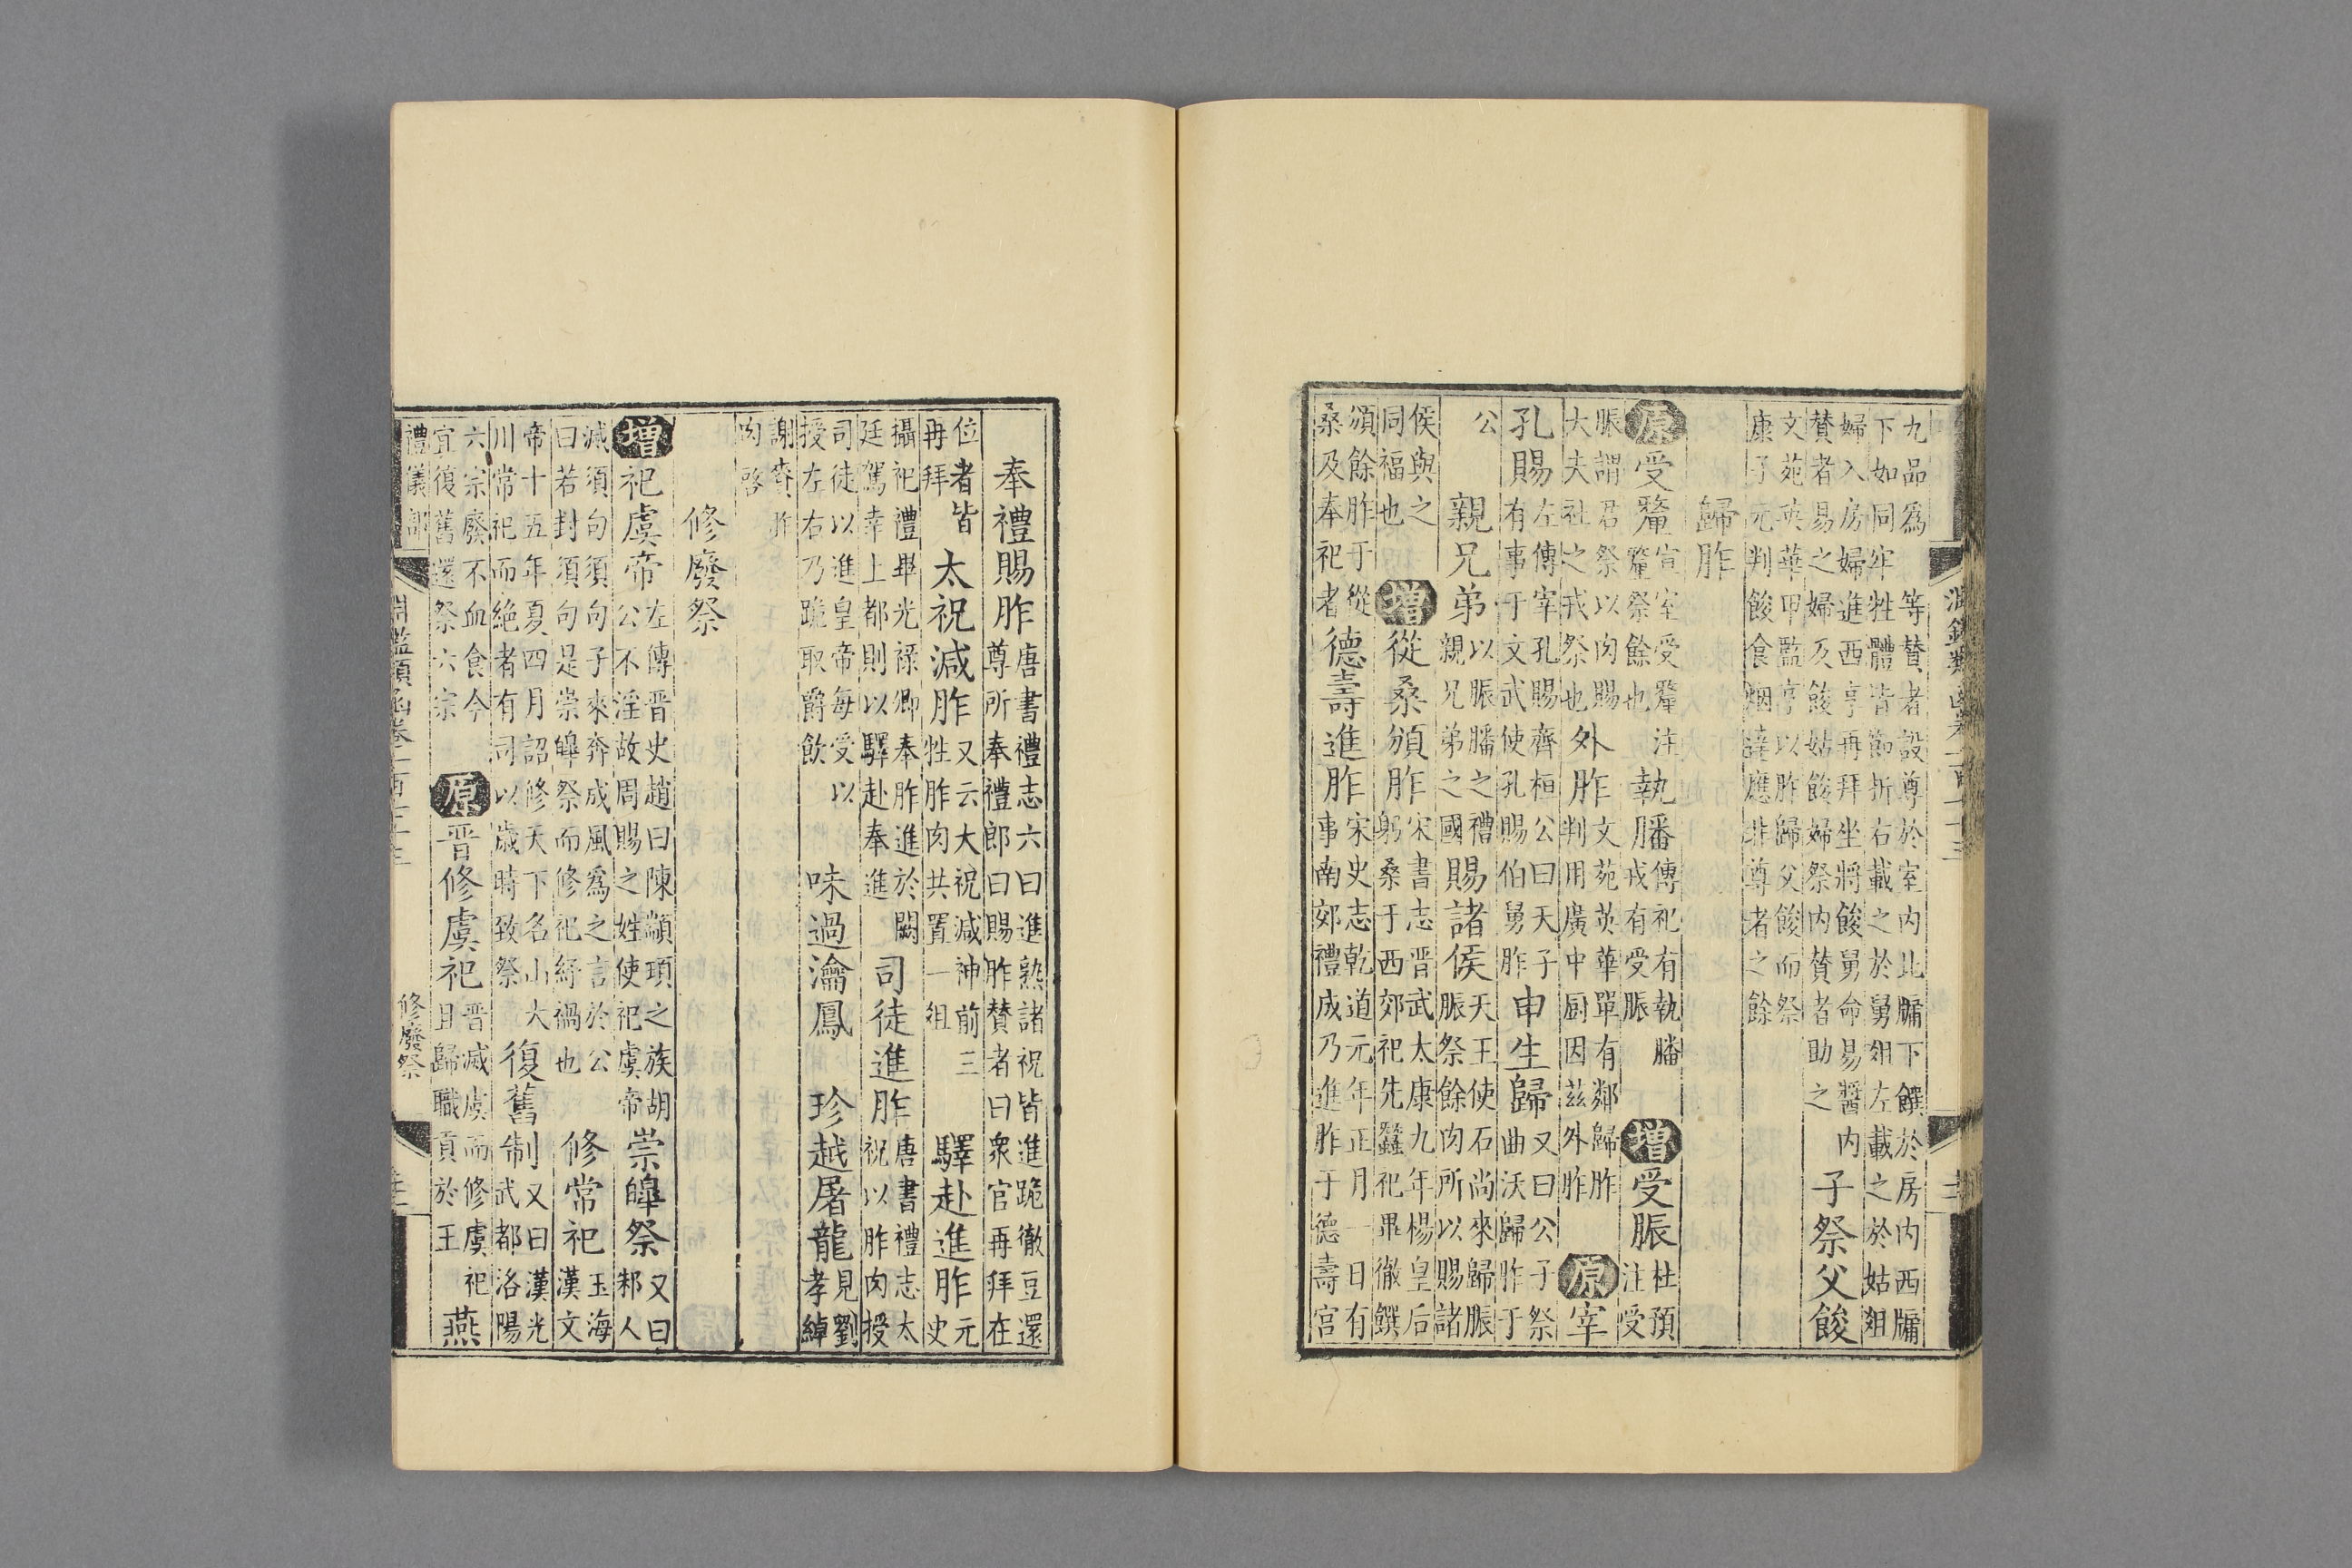 淵鑑類函卷一百七十三
九品爲等贊者設尊於室内北牖下饌於房内西牖
下如同牢牲體皆節折右載之於舅俎左載之於姑俎
婦入房婦進西亨再拜坐將餕舅命易醬内
贊者易之婦及餕姑餕婦祭内贊者助之
子祭父餕
文苑英華甲監亨以胙歸父餕而祭
康子元判餕食姻達應非尊者之餘
歸胙
原受釐
宣室受釐注
釐祭餘也
執膰
傳祀有執膰
戎有受脤
增受脤
杜預
注受
脤謂君祭以肉賜
大夫社之戎祭也
外胙
文苑英華單有鄰歸胙
判用廣中厨因兹外胙
原宰
孔賜
左傳宰孔賜齊桓公曰天子
有事于文武使孔賜伯舅胙
申生歸
又曰公子祭
曲沃歸胙于
公
親兄弟
以脤膰之禮
親兄弟之國
賜諸侯
天王使石尚來歸脤
脤祭餘肉所以賜諸
侯與之
同福也
增從桑頒胙
宋書志晋武太康九年楊皇后
躬桑于西郊祀先蠶祀畢徹饌
頒餘胙于從
桑及奉祀者
德壽進胙
宋史志乾道元年正月一日有
事南郊禮成乃進胙于德壽宫
奉禮賜胙
唐書禮志六曰進熟諸祝皆進跪徹豆還
尊所奉禮郎曰賜胙贊者曰衆官再拜在
位者皆
再拜
太祝減胙
又云大祝減神前三
牲胙肉共置一俎
驛赴進胙
元
史
攝祀禮畢光禄卿奉胙進於闕
廷駕幸上都則以驛赴奉進
司徒進胙
唐書禮志太
祝以胙肉授
司徒以進皇帝每受以
授左右乃跪取爵飲
味過瀹鳳
珍越屠龍
見劉
孝綽
謝賚胙
肉啓
修廢祭
增祀虞帝
左傳晋史趙曰陳顓頊之族胡
公不淫故周賜之姓使祀虞帝
崇皥祭
又曰
邾人
滅須句須句子來奔成風爲之言於公
曰若封須句是崇皥祭而修祀紓禍也
修常祀
玉海
漢文
帝十五年夏四月詔修天下名山大
川常祀而絶者有司以歳時致祭
復舊制
又曰漢光
武都洛陽
六宗廢不血食今
宜復舊還祭六宗
原晋修虞祀
晋滅虞而修虞祀
且歸職貢於王
燕
禮儀部
淵鑑類函卷一百七十三
修廢祭